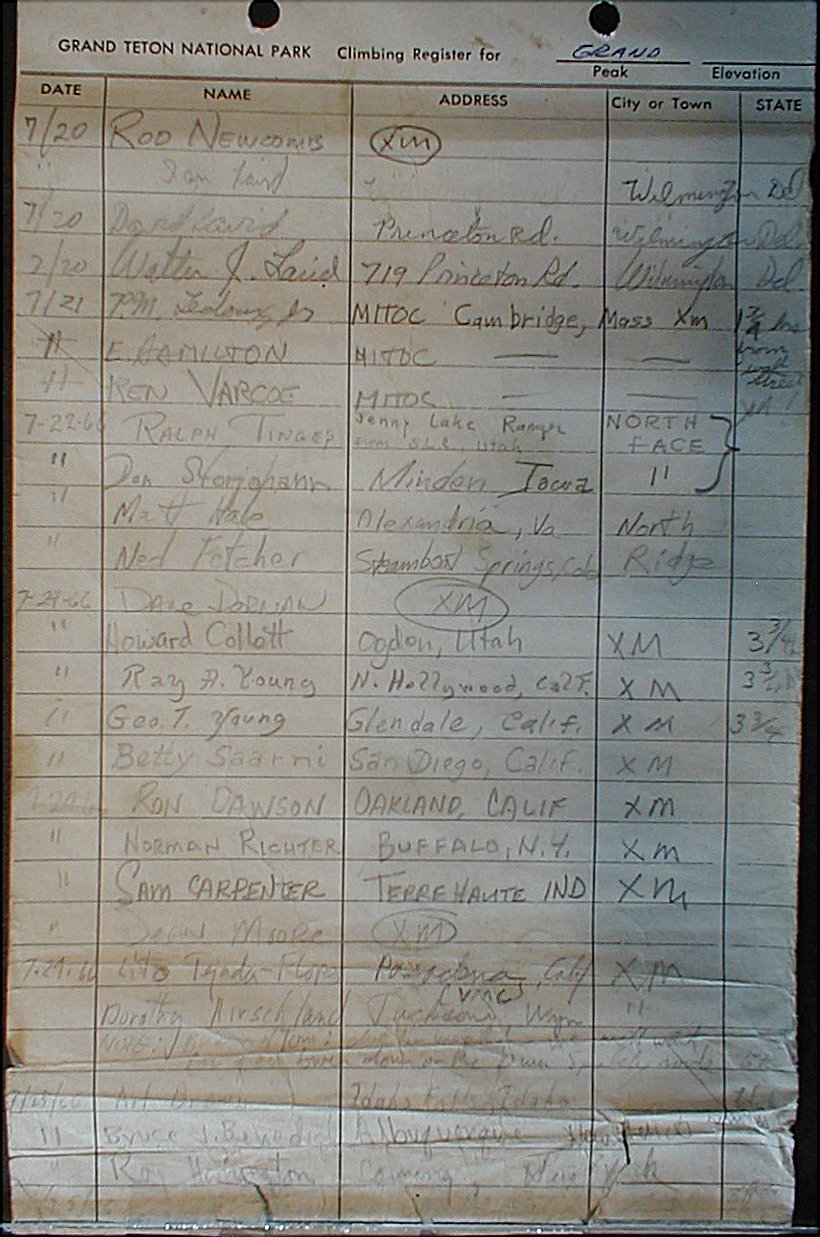 GRAND TETON NATIONAL PARK Climbing Register for GRAND
Peak Elevation
DATE NAME ADDRESS City or Town STATE
7/20 ROD NEWCOMB XM
" Ian Laird Wilmington Del
7/20 David Laird Princeton Rd. Wilmington Del.
7/20 Walter J. Laird 719 Princeton Rd. Wilmington Del.
7/21 MITOC Cambridge, Mass XM 1 3/4 hrs
from
" E. HAMILTON MITOC — —
wall
street
" KEN VARCOE MITOC — —
7-22-66 RALPH TINGEY Jenny Lake Ranger NORTH
from S.L.C., Utah FACE
" Don Storjohann Minden Iowa "
" Matt Hale Alexandria, Va North
" Ned Fetcher Steamboat Springs, Colo Ridge
7-24-66 DAVE DORNAN XM
" Howard Collett Ogden, Utah XM 3 3/4
" Ray A. Young N. Hollywood, Calf. XM 3 3/4
" Geo. T. Young Glendale, Calif. XM 3 3/4
" Betty Saarni San Diego, Calif. XM
7-24-66 RON DAWSON OAKLAND, CALIF XM
" NORMAN RICHTER BUFFALO, N.Y. XM
" SAM CARPENTER TERRE HAUTE IND XM
" MOORE XM
7.24.66 Lito Tejada-Flores Pasadena, Calif XM
Dorothy Hirschland "
NOTE:
down on the
7/25/66 Art Idaho Falls, Idaho
" Bruce J. Albuquerque New Mexico
" Roy Corning, New York